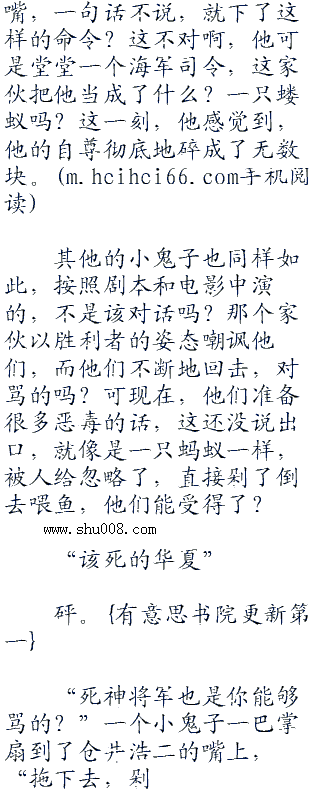 嘴，一句话不说，就下了这
样的命令？这不对啊，他可
是堂堂一个海军司令，这家
伙把他当成了什么？一只蝼
蚁吗？这一刻，他感觉到，
他的自尊彻底地碎成了无数
块。(m.hcihci66.com手机阅
读)
其他的小鬼子也同样如
此，按照剧本和电影中演
的，不是该对话吗？那个家
伙以胜利者的姿态嘲讽他
们，而他们不断地回击，对
骂的吗？可现在，他们准备
很多恶毒的话，这还没说出
口，就像是一只蚂蚁一样，
被人给忽略了，直接剁了倒
去喂鱼，他们能受得了？
www.shu008.com
“该死的华夏”
砰。{有意思书院更新第
一}
“死神将军也是你能够
骂的？”一个小鬼子一巴掌
扇到了仓井浩二的嘴上，
“拖下去，剁